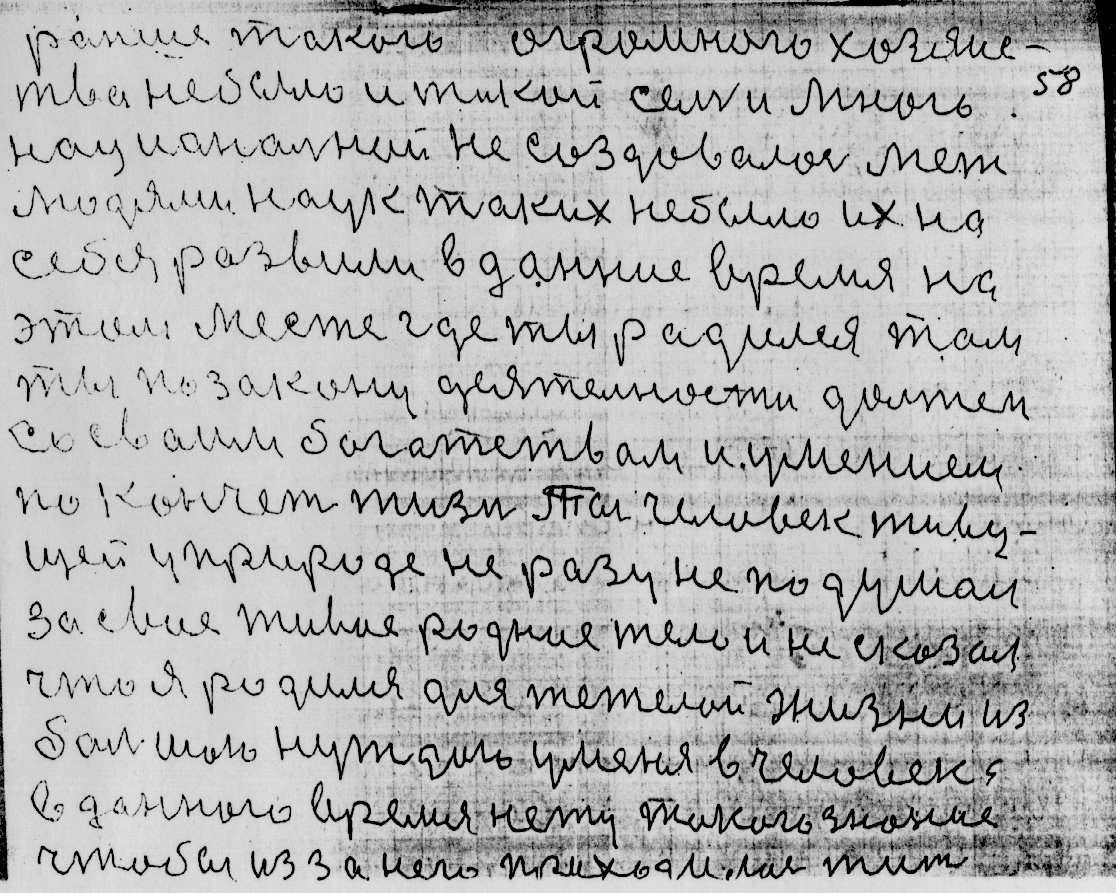 ранше такого огромного хозяйс-
тва небыло и такой семи много 58
националной не создовалос меж
людями наук таких небыло их на
себя развили в данние время на
этом месте где ты радился там
ты по закону деятелности должен
со сваим богатетвам и умением
по кончет жизн Та человек живу-
щей у природе не разу не подумал
за свае живае родние тело и не сказал
что я родился для тежелой жизни из
балшою нуждою уменя в человека
в данного время нету такого знание
чтобы из за него приходилос жит